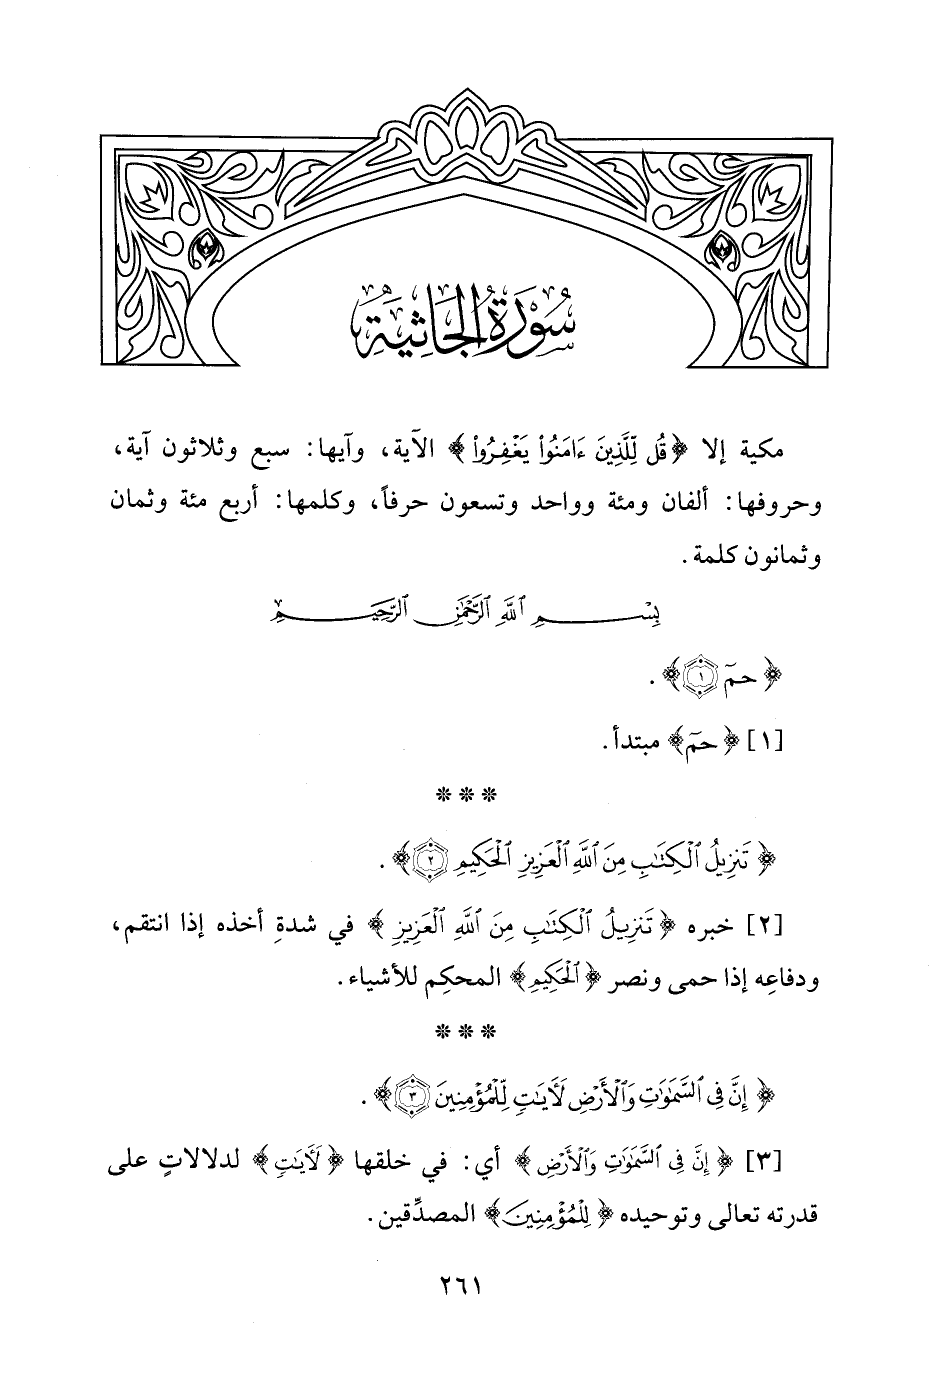 سُورَةُ الجَاثِيَةِ
مكية إلا ﴿قُل لِّلَّذِينَ ءَامَنُوا۟ يَغْفِرُوا۟﴾ الآية، وآيها: سبع وثلاثون آية،
وحروفها: ألفان ومئة وواحد وتسعون حرفاً، وكلمها: أربع مئة وثمان
وثمانون كلمة.
بِسْمِ ٱللَّهِ ٱلرَّحْمَٰنِ ٱلرَّحِيمِ
﴿حمٓ ١﴾.
[١] ﴿حمٓ﴾ مبتدأ.
* * *
﴿تَنزِيلُ ٱلْكِتَٰبِ مِنَ ٱللَّهِ ٱلْعَزِيزِ ٱلْحَكِيمِ ٢﴾.
[٢] خبره ﴿تَنزِيلُ ٱلْكِتَٰبِ مِنَ ٱللَّهِ ٱلْعَزِيزِ﴾ في شدةِ أخذه إذا انتقم،
ودفاعِه إذا حمى ونصر ﴿ٱلْحَكِيمِ﴾ المحكِم للأشياء.
* * *
﴿إِنَّ فِى ٱلسَّمَٰوَٰتِ وَٱلْأَرْضِ لَءَايَٰتٍ لِّلْمُؤْمِنِينَ ٣﴾.
[٣] ﴿إِنَّ فِى ٱلسَّمَٰوَٰتِ وَٱلْأَرْضِ﴾ أي: في خلقها ﴿لَءَايَٰتٍ﴾ لدلالاتٍ على
قدرته تعالى وتوحيده ﴿لِلْمُؤْمِنِينَ﴾ المصدِّقين.
٢٦١